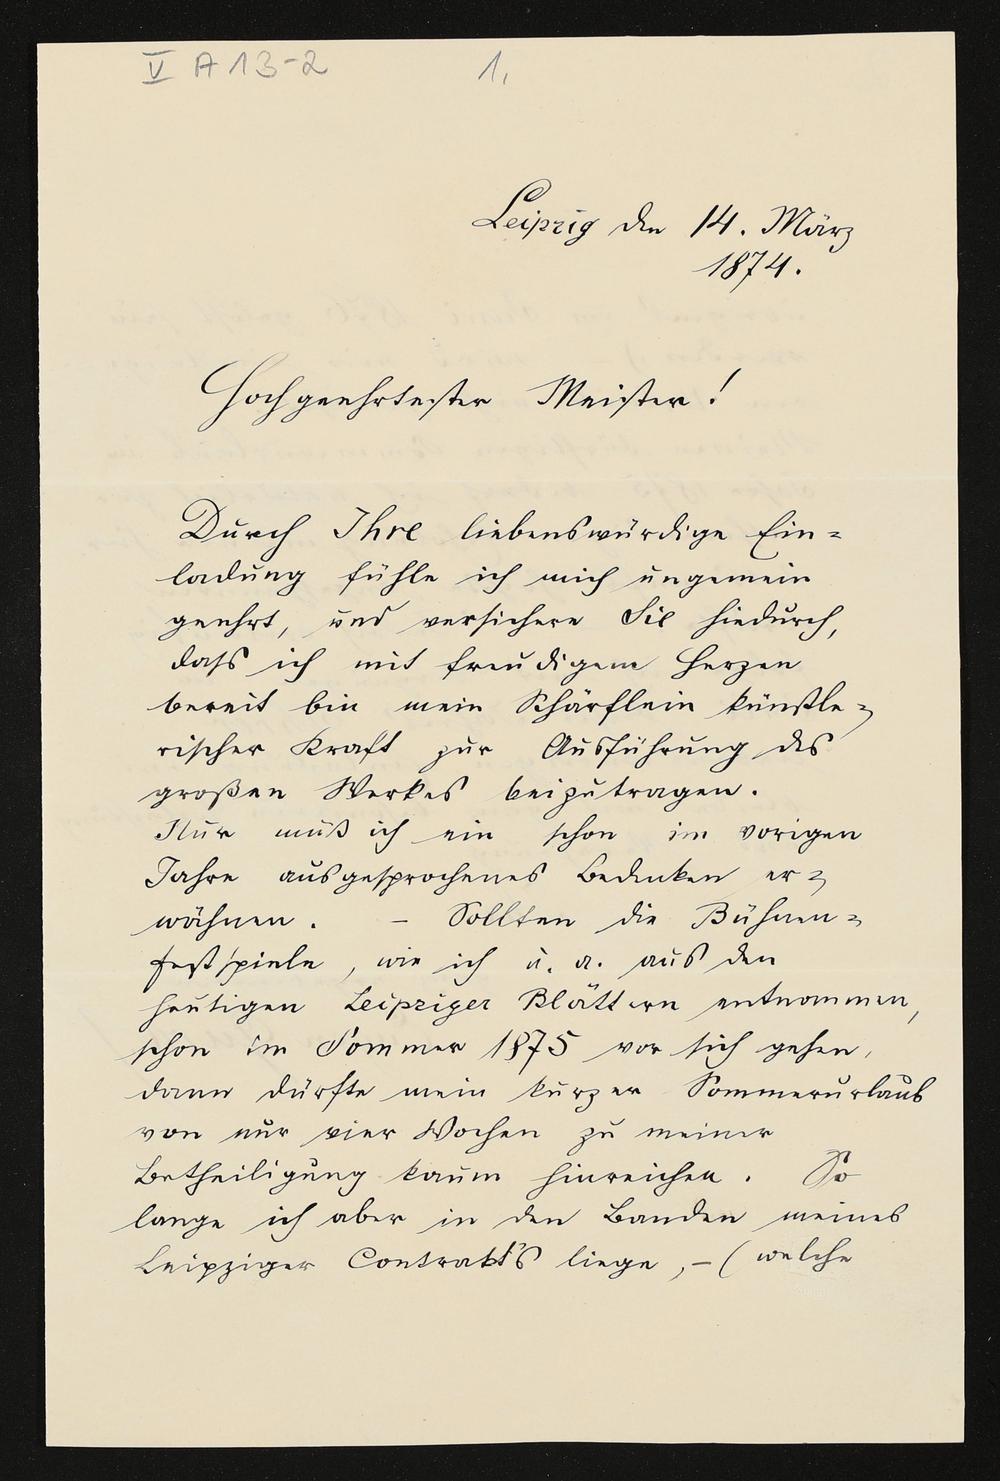 V A 13-2 1.
Leipzig den 14. März
1874.
Hochgeehrtester Meister!
Durch Ihre liebenswürdige Ein=
ladung fühle ich mich ungemein
geehrt, und versichere Sie hiedurch,
dass ich mit freudigem Herzen
bereit bin mein Schärflein künstle=
rischer Kraft zur Ausführung des
großen Werkes beizutragen.
Nur muß ich ein schon im vorigen
Jahre ausgesprochenes Bedenken er=
wähnen. – Sollten die Bühnen=
festspiele, wie ich u. a. aus den
heutigen Leipziger Blättern entnommen,
schon im Sommer 1875 vor sich gehen,
dann dürfte mein kurzer Sommerurlaub
von nur vier Wochen zu meiner
Betheiligung kaum hinreichen. So
lange ich aber in den Banden meines
Leipziger Contrakt's liege, – (welche